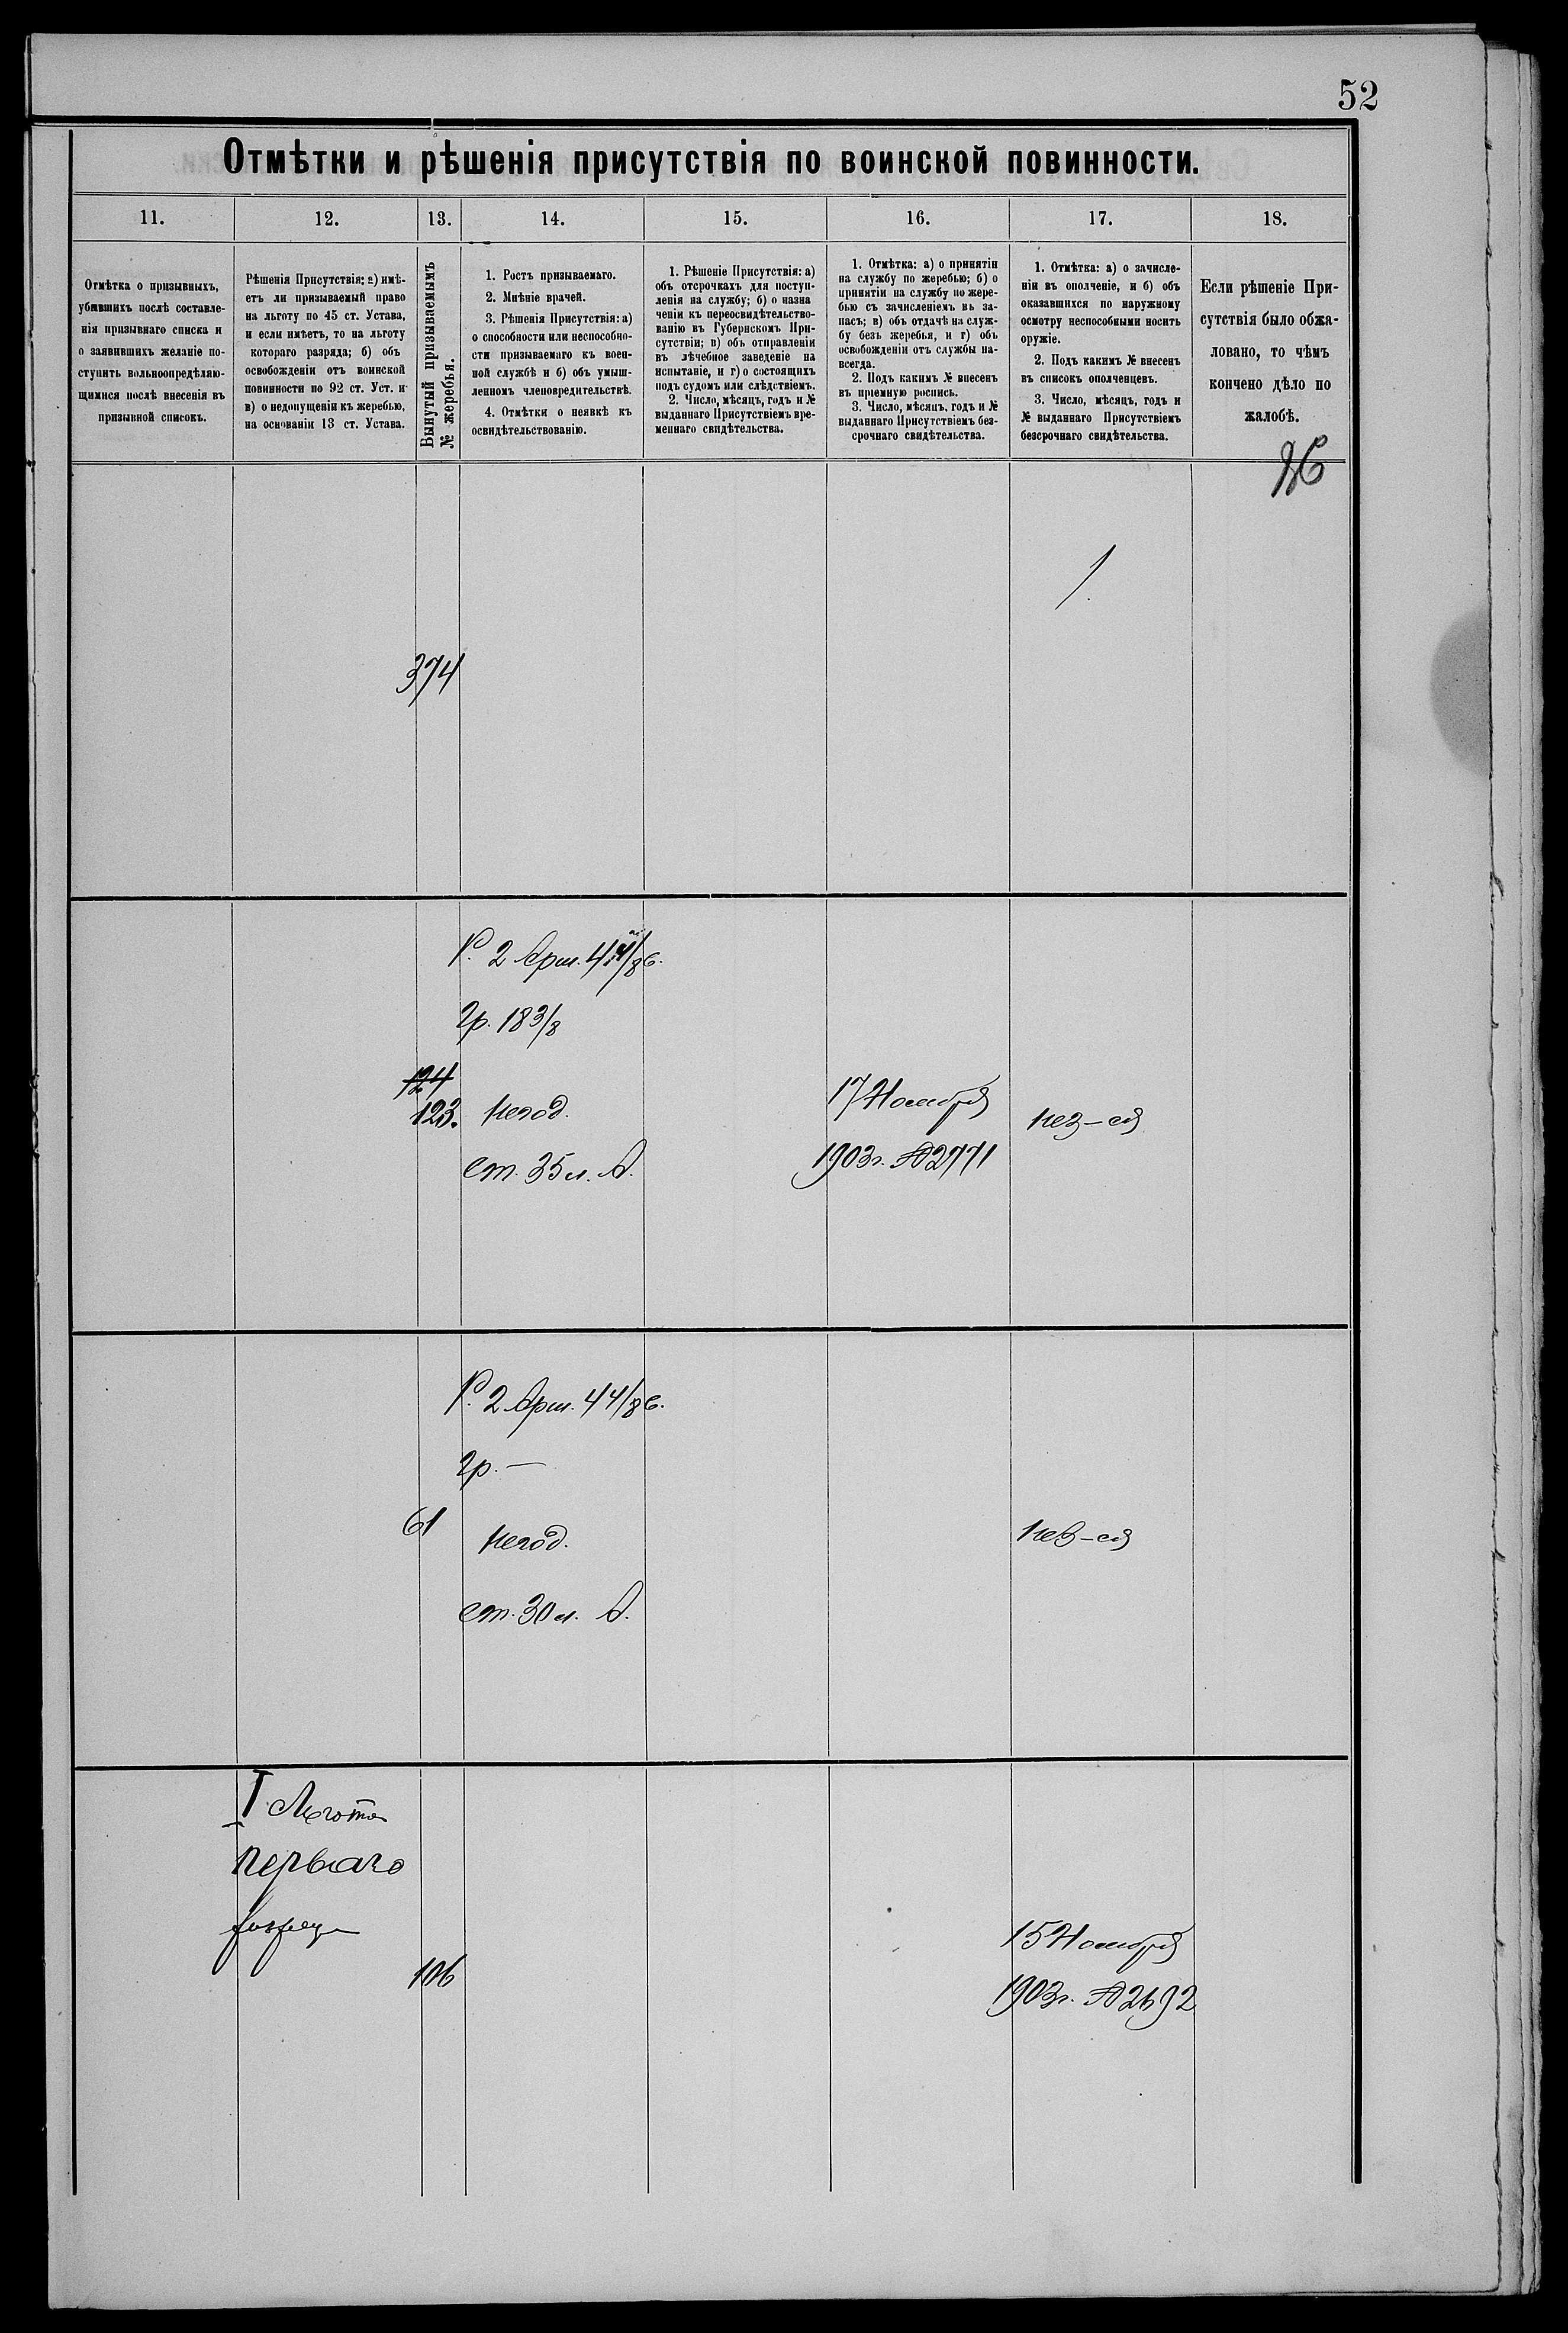 52
Отмѣтки и рѣшенія присутствія по воинской повинности.
11.
12.
13.
14.
15.
16.
17.
18.
Отмѣтка о призывныхъ,
убывшихъ послѣ составле-
нія призывнаго списка и
о заявившихъ желаніе по-
ступить вольноопредѣляю-
щимися послѣ внесенія въ
призывной списокъ.
Рѣшенія Присутствія: а) имѣ-
етъ ли призываемый право
на льготу по 45 ст. Устава,
и если имѣетъ, то на льготу
котораго разряда; б) объ
освобожденіи отъ воинской
повинности по 92 ст. Уст. и
в) о недопущеніи къ жеребью,
на основаніи 13 ст. Устава.
Вынутый призываемымъ
№ жеребья.
1. Ростъ призываемаго.
2. Мнѣніе врачей.
3. Рѣшенія Присутствія: а)
о способности или неспособно-
сти призываемаго къ воен-
ной службѣ и б) объ умыш-
ленномъ членовредительствѣ.
4. Отмѣтки о неявкѣ къ
освидѣтельствованію.
1. Рѣшеніе Присутствія: а)
объ отсрочкахъ для поступ-
ленія на службу; б) о назна
ченіи къ переосвидѣтельство-
ванію въ Губернскомъ При-
сутствіи; в) объ отправленіи
въ лѣчебное заведеніе на
испытаніе, и г) о состоящихъ
подъ судомъ или слѣдствіемъ.
2. Число, мѣсяцъ, годъ и №
выданнаго Присутствіемъ вре-
меннаго свидѣтельства.
1. Отмѣтка: а) о принятіи
на службу по жеребью; б) о
принятіи на службу по жере-
бью съ зачисленіемъ въ за-
пасъ; в) объ отдачѣ на служ-
бу безъ жеребья, и г) объ
освобожденіи отъ службы на-
всегда.
2. Подъ какимъ № внесенъ
въ пріемную роспись.
3. Число, мѣсяцъ, годъ и №
выданнаго Присутствіемъ без-
срочнаго свидѣтельства.
1. Отмѣтка: а) о зачисле-
ніи въ ополченіе, и б) объ
оказавшихся по наружному
осмотру неспособными носить
оружіе.
2. Подъ какимъ № внесенъ
въ списокъ ополченцевъ.
3. Число, мѣсяцъ, годъ и
№ выданнаго Присутствіемъ
безсрочнаго свидѣтельства.
Если рѣшеніе При-
сутствія было обжа-
ловано, то чѣмъ
кончено дѣло по
жалобѣ.
1.
374
Р. 2 Арш. 4 4/8 в.
Гр. 18 3/8
124
123.
негод.
ст. 35 л. А.
17 Ноября
1903 г. № 2771
Р. 2 Арш. 4 4/8 в.
Гр. —
61
негод.
ст. 30 л. А.
I Льгота
перваго
разряда
106
15 Ноября
1903 г. № 2692